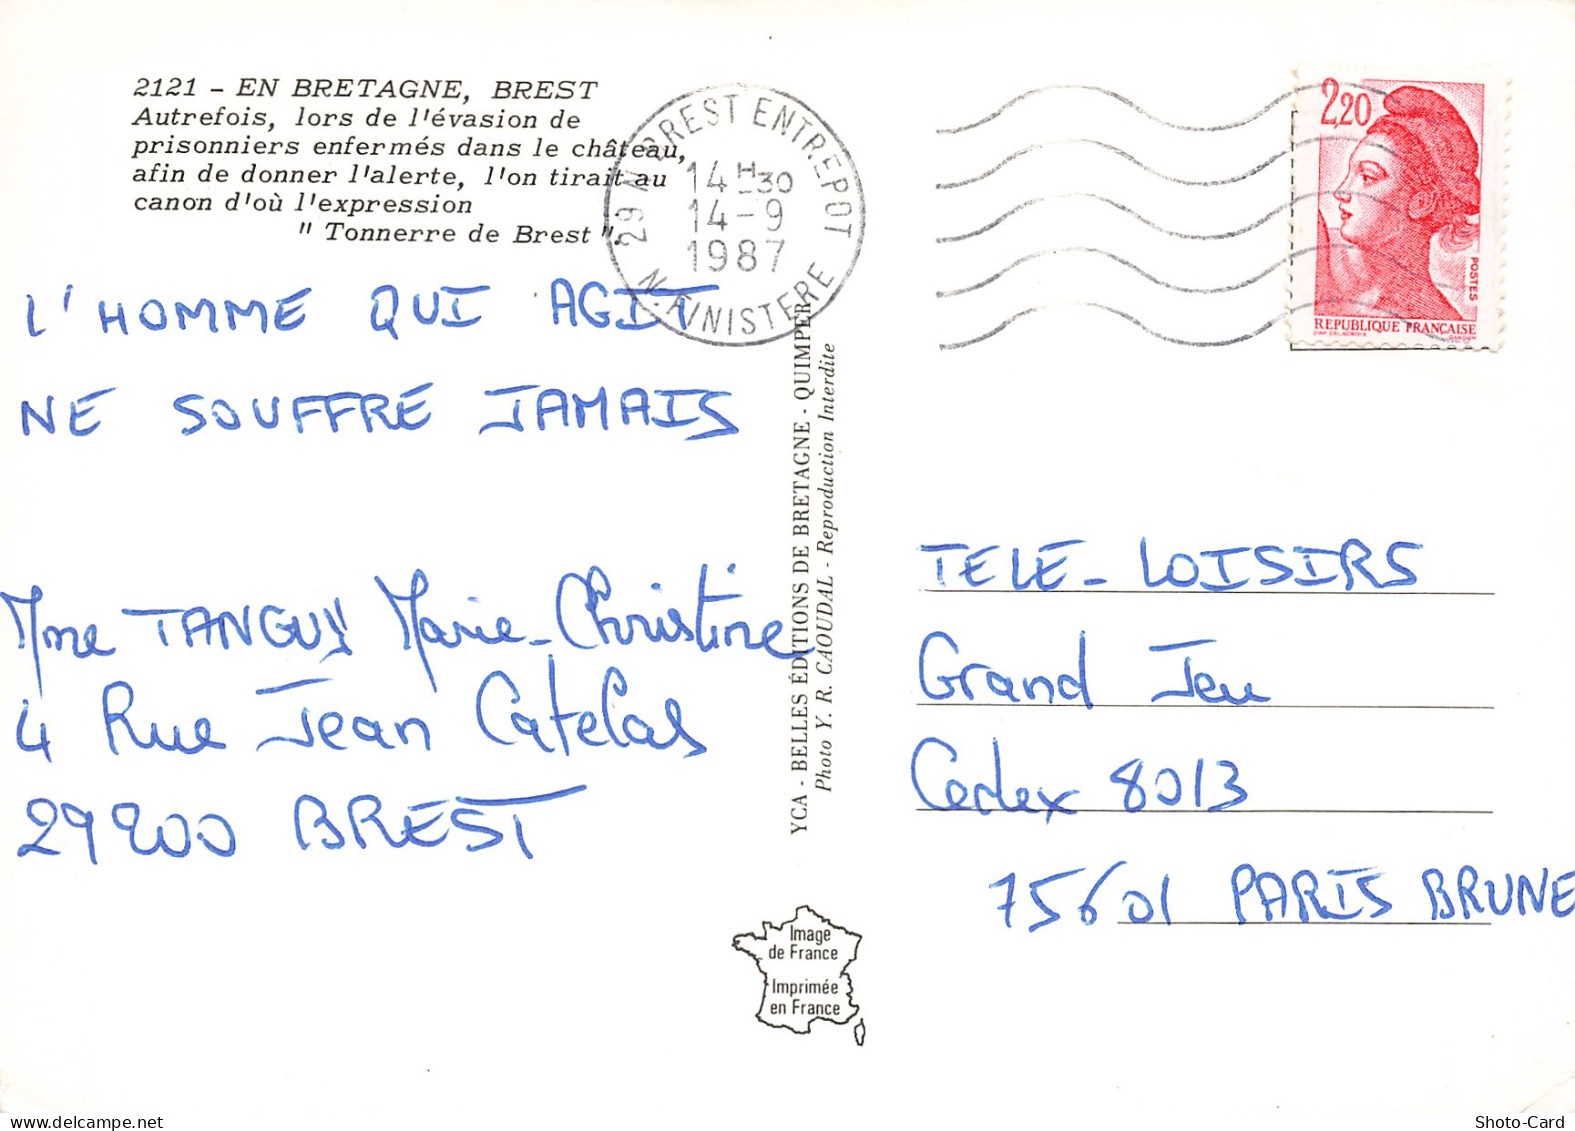 2121 - EN BRETAGNE, BREST
Autrefois, lors de l'évasion de
prisonniers enfermés dans le château,
afin de donner l'alerte, l'on tirait au
canon d'où l'expression
" Tonnerre de Brest ".
29 N BREST ENTREPOT
14 H 30
14 - 9
1987
N. FINISTERE
2,20
POSTES
REPUBLIQUE FRANÇAISE
D'AP. DELACROIX GANDON
L'HOMME QUI AGIT
NE SOUFFRE JAMAIS
Mme TANGUY Marie-Christine
4 Rue Jean Catelas
29200 BREST
YCA - BELLES ÉDITIONS DE BRETAGNE - QUIMPER
Photo Y. R. CAOUDAL - Reproduction Interdite
TELE-LOISIRS
Grand Jeu
Cedex 8013
75601 PARIS BRUNE
Image
de France
Imprimée
en France
delcampe.net
Shoto-Card